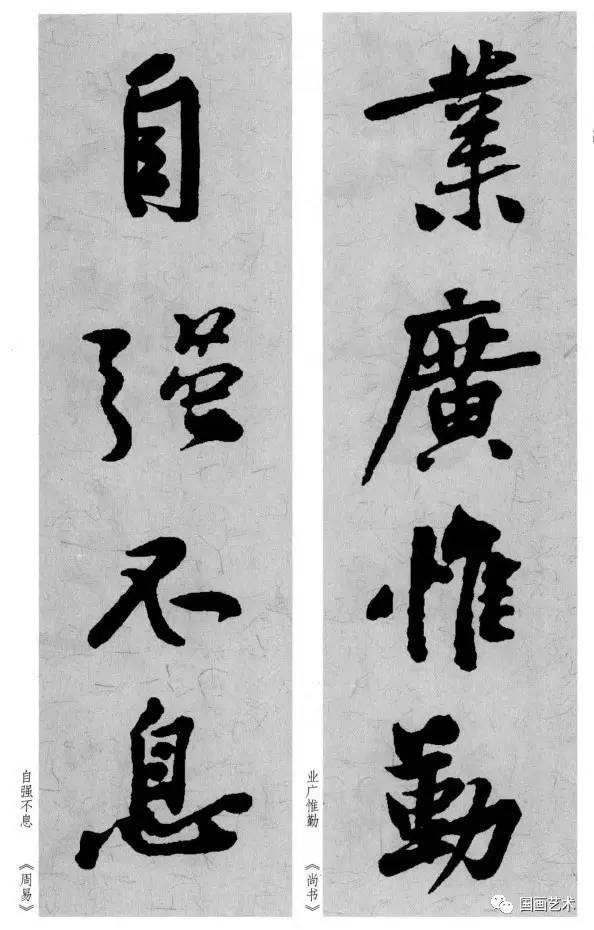 業廣惟勤
业广惟勤 《尚书》
自强不息
自强不息 《周易》
国画艺术